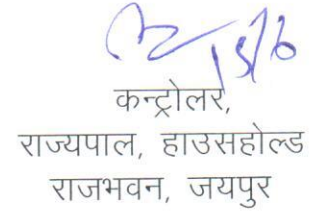 15/6
कन्ट्रोलर,
राज्यपाल, हाउसहोल्ड
राजभवन, जयपुर